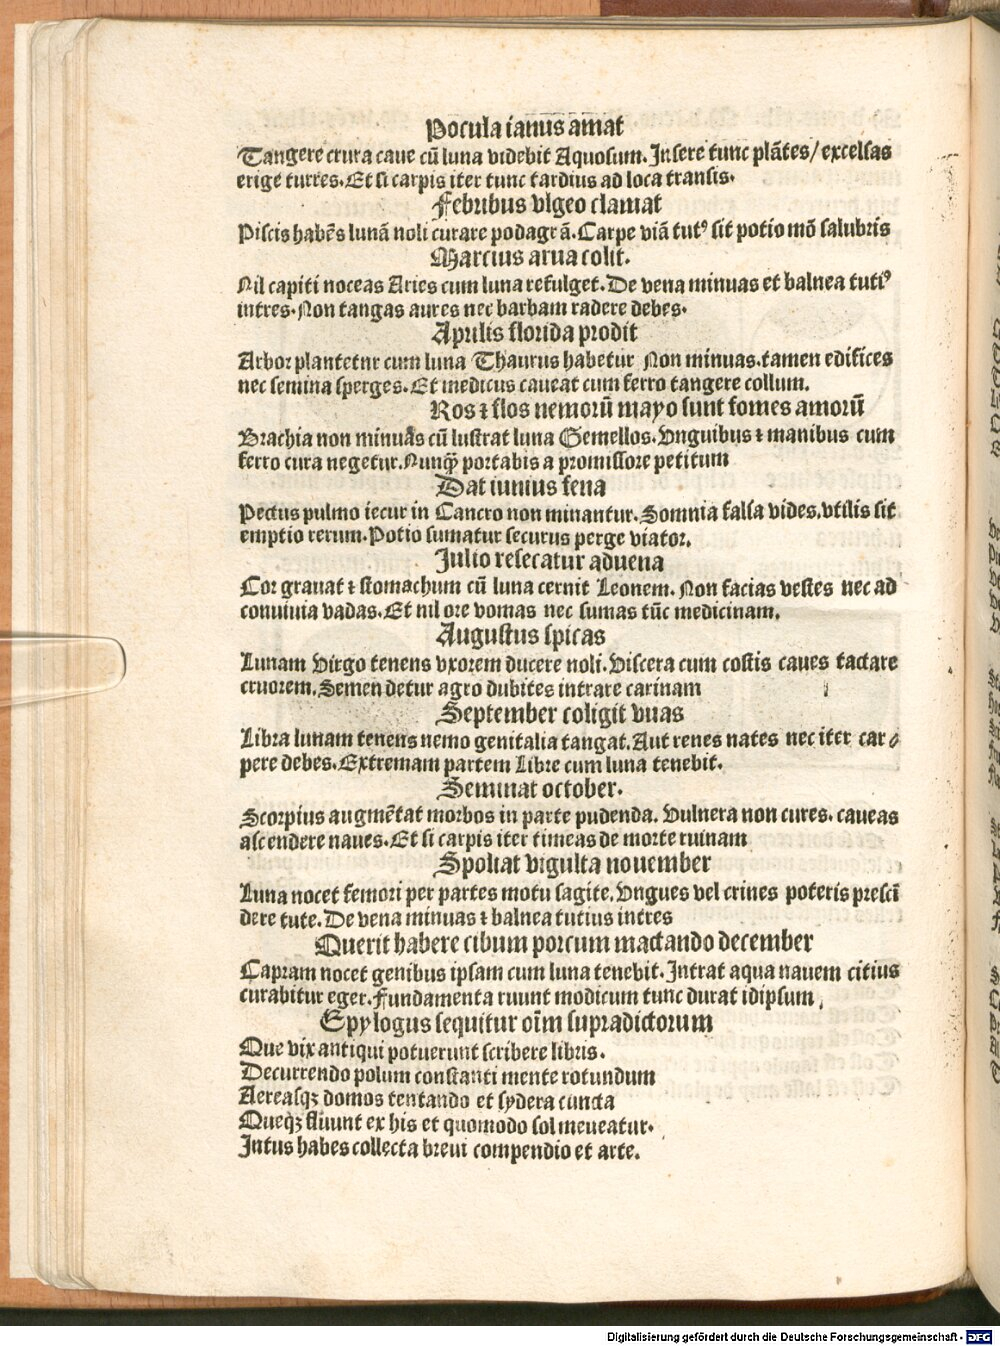 Pocula ianus amat
Tangere crura caue cū luna videbit Aquosum. Insere tunc plātes/ excelsas
erige turres. Et si carpis iter tunc tardius ad loca transis.
Febribus vlgeo clamat
Piscis habēs lunā noli curare podagrā. Carpe viā tutꝰ sit potio mō salubris
Marcius arua colit.
Nil capiti noceas Aries cum luna refulget. De vena minuas et balnea tutiꝰ
intres. Non tangas aures nec barbam radere debes.
Aprilis florida prodit
Arbor plantetur cum luna Thaurus habetur Non minuas. tamen edifices
nec semina sperges. Et medicus caueat cum ferro tangere collum.
Ros ⁊ flos nemorū mayo sunt fomes amorū
Brachia non minuas cū lustrat luna Gemellos. Vnguibus ⁊ manibus cum
ferro cura negetur. Nunq̄ portabis a promissore petitum
Dat iunius fena
Pectus pulmo iecur in Cancro non minantur. Somnia falsa vides. vtilis sit
emptio rerum. Potio sumatur securus perge viator.
Julio resecatur aduena
Cor grauat ⁊ stomachum cū luna cernit Leonem. Non facias vestes nec ad
conuiuia vadas. Et nil ore vomas nec sumas tūc medicinam.
Augustus spicas
Lunam Virgo tenens vxorem ducere noli. Viscera cum costis caues tactare
cruorem. Semen detur agro dubites intrare carinam
September coligit vuas
Libra lunam tenens nemo genitalia tangat. Aut renes nates nec iter car⸗
pere debes. Extremam partem Libre cum luna tenebit.
Seminat october.
Scorpius augmētat morbos in parte pudenda. Vulnera non cures. caueas
ascendere naues. Et si carpis iter timeas de morte ruinam
Spoliat virgulta nouember
Luna nocet femori per partes motu sagite. Vngues vel crines poteris prescī
dere tute. De vena minuas ⁊ balnea tutius intres
Querit habere cibum porcum mactando december
Capram nocet genibus ipsam cum luna tenebit. Intrat aqua nauem citius
curabitur eger. Fundamenta ruunt modicum tunc durat idipsum.
Epylogus sequitur oīm supradictorum
Que vix antiqui potuerunt scribere libris.
Decurrendo polum constanti mente rotundum
Aereasqꝫ domos tentando et sydera cuncta
Queqꝫ fluunt ex his et quomodo sol moueatur.
Intus habes collecta breui compendio et arte.
Digitalisierung gefördert durch die Deutsche Forschungsgemeinschaft - DFG